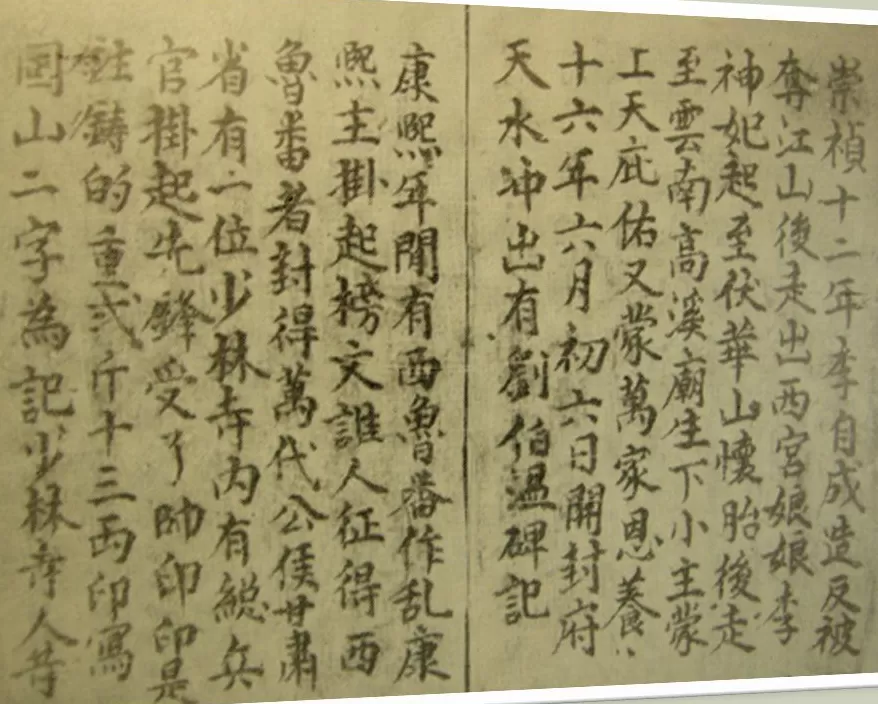 崇禎十二年李自成造反被
奪江山後走出西宮娘娘李
神妃起至伏華山懷胎後走
至雲南高溪廟生下小主蒙
上天庇佑又蒙萬家恩養
十六年六月初六日開封府
天水冲出有劉伯溫碑記
康熙年間有西魯番作乱康
熙主掛起榜文誰人征得西
魯番者封得萬代公侯甘肅
省有一位少林寺內有総兵
官掛起先鋒受了帥印印是
鉄鑄的重弍斤十三両印寫
囯山二字為記少林寺人等